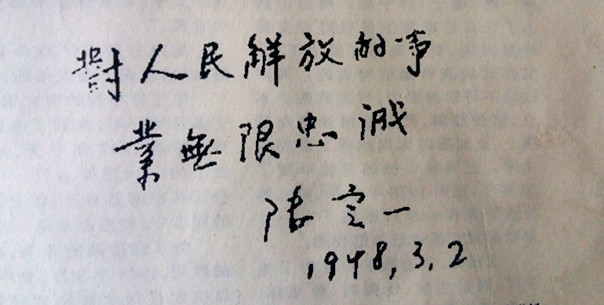 對人民解放的事
業無限忠誠
陆定一
1948.3.2